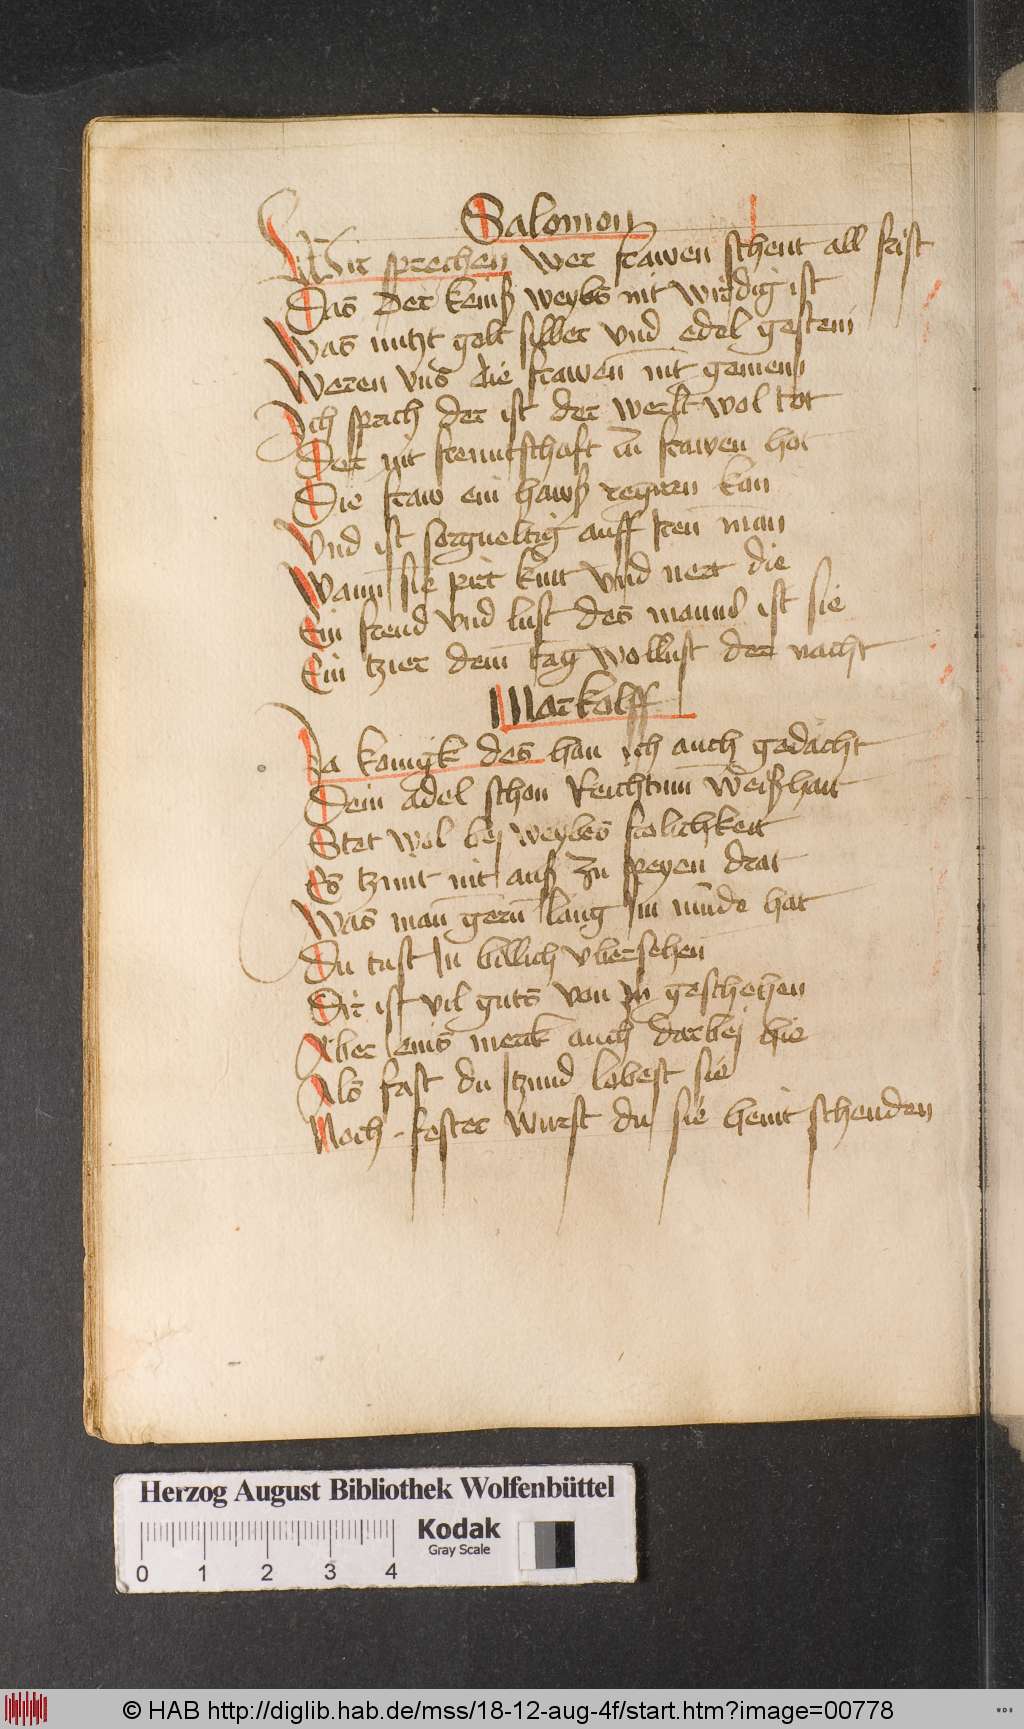 Salomon
Wir sprechen wer frawen schent all frist
Das der keinß weybs nit wirdig ist
Was nutzt gelt silber vnd edel gestein
Weren vns die frawen nit gemein
Ich sprich der ist der werlt wol tot
Der nit freuntschaft zu frawen hot
Die fraw ein hawß regiren kan
Vnd ist sorgueltig auff iren man
Wann sie pirt kint vnd nert die
Ein freud vnd lust des manns ist sie
Ein tzier dem tag wollust der nacht
Markolff
Ja konigk des han ich auch gedacht
Dein adel schon Reichtum weißhait
Stet wol bei weybes frolichkeit
Es tzimt nit auß zu speyen drat
Was man gern lang im munde hat
Du tust In billich vbersehen
Dir ist vil guts von In geschehen
Aber eins merk auch darbei hie
Als fast du itzund lobest sie
Noch fester wurst du sie heint schenden
Herzog August Bibliothek Wolfenbüttel
Kodak
Gray Scale
0 1 2 3 4
© HAB http://diglib.hab.de/mss/18-12-aug-4f/start.htm?image=00778